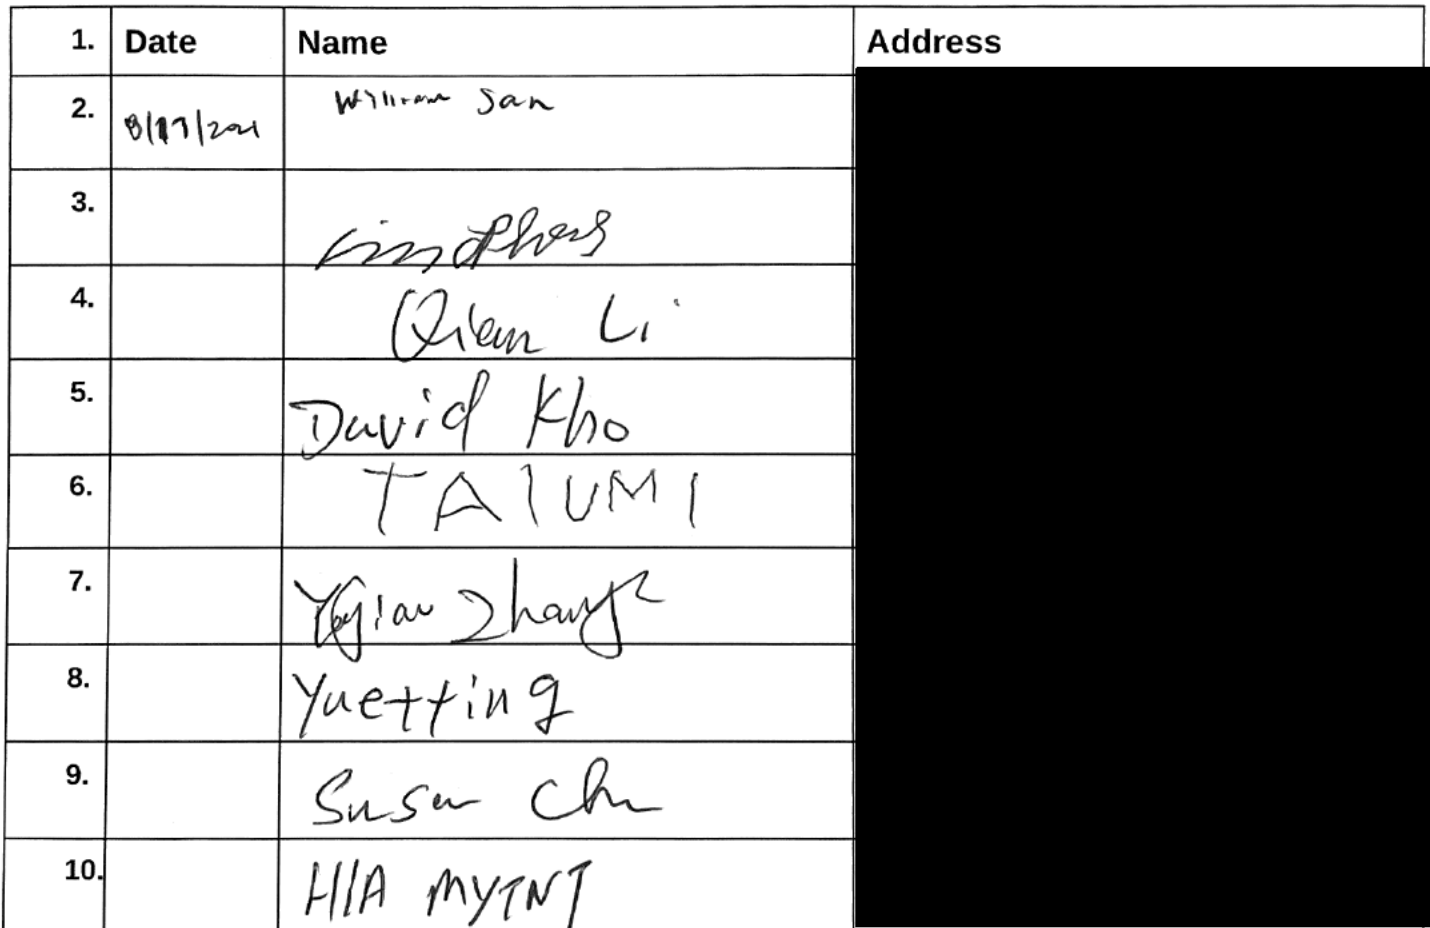 1. Date Name Address
2. 8/17/2021 William San
3.
4. Qian Li
5. David Kho
6. TAIUMI
7. Zhang
8. Yuetting
9. Susan Chu
10. HLA MYINT